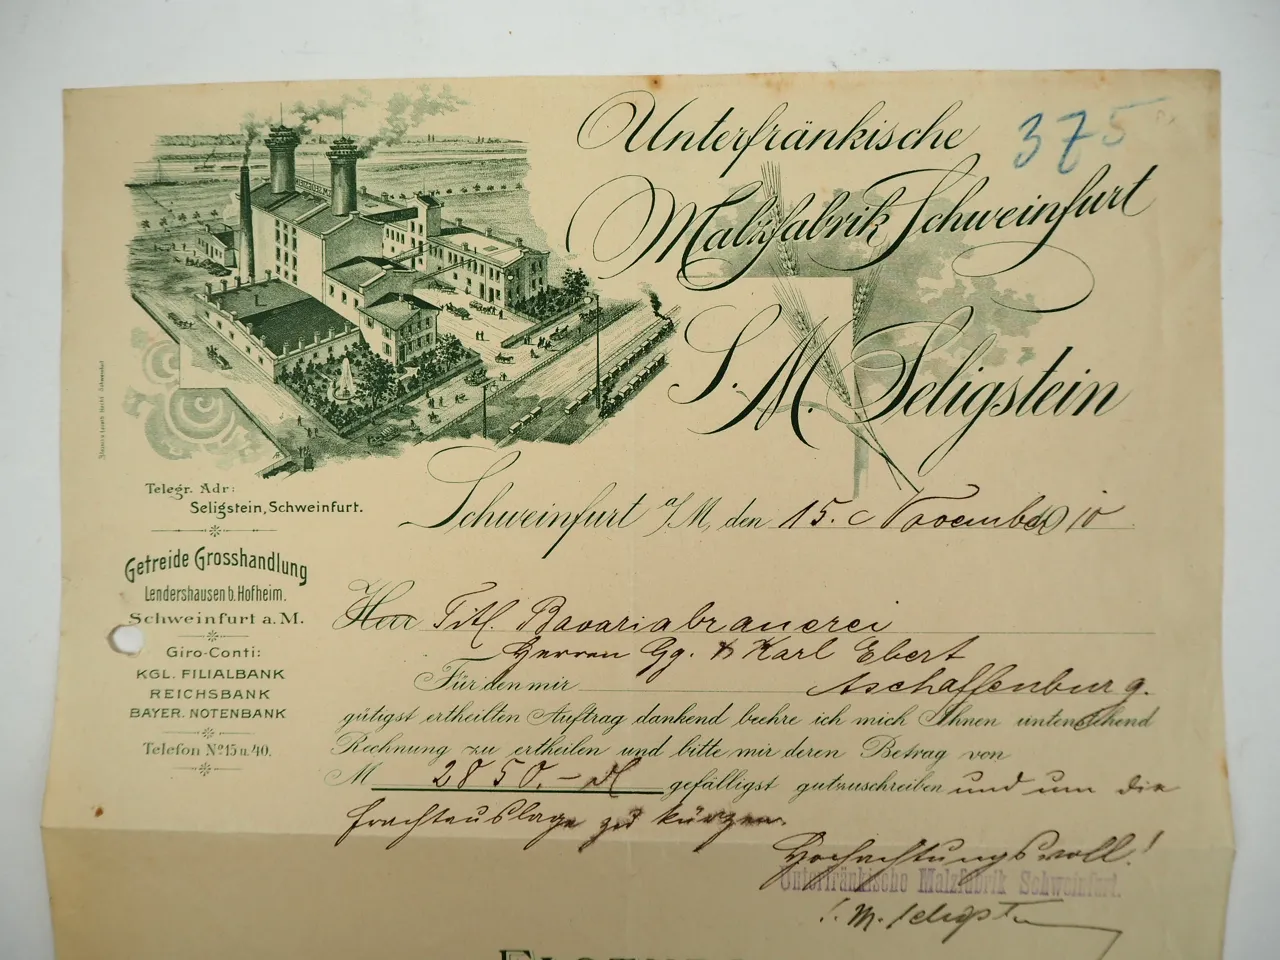 Unterfränkische
375
Malzfabrik Schweinfurt
S. M. Seligstein
Telegr. Adr:
Seligstein, Schweinfurt.
Schweinfurt a/M, den 15. November 10
Getreide Grosshandlung
Lendershausen b. Hofheim.
Schweinfurt a. M.
Giro-Conti:
KGL. FILIALBANK
REICHSBANK
BAYER. NOTENBANK
Telefon No. 15 u. 40.
Herr Titl. Bavariabrauerei
Herren Gg. & Karl Ebert
Für den mir Aschaffenburg.
gütigst ertheilten Auftrag dankend beehre ich mich Ihnen untenstehend
Rechnung zu ertheilen und bitte mir deren Betrag von
M 2850.- M gefälligst gutzuschreiben und um die
Frachtauslage zu kürzen.
Hochachtungsvoll!
Unterfränkische Malzfabrik Schweinfurt.
S. M. Seligstein